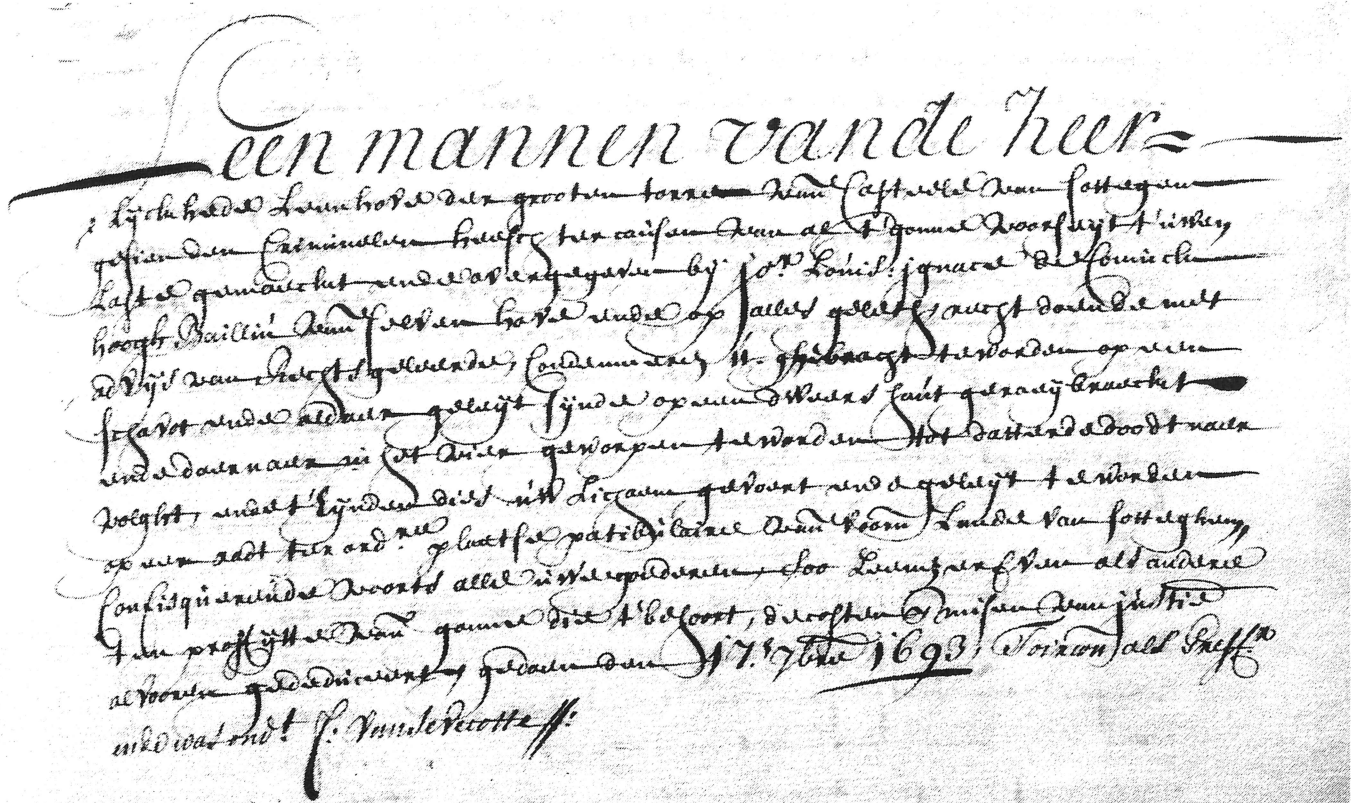 Leen mannen vande heer=
lyckhede Leenhove der grooten torre vanden Casteele van Sottegem
gesien den Criminelen heesch ter causen van al t'gonne voorseyt t'uwen
Laste gemaeckt ende overgegeven by jor. Louis: jgnace de Coninck
hoogh Bailliu vanden selven hove ende op alles gelet, recht doende met
advys van Rechtsgeleerde, Condemneren U. ghebracht te worden op een
schavot ende aldaer geleyt synde op een dweers haut geraeybraeckt
ende daernaer in het vier geworpen te worden tot datter de doodt naer
volght, ende t'synden dies uw Lichaem gevoert ende geleyt te worden
op een radt ter ordre. plaetse patibulaire vande voorn. Lande van Sotteghem
Confisquerende voorts alle uwe goederen, soo Leen, erfven als andere
ten proffytte vande gonne die t'behoort, de costen & misen van justitie
alvooren gededuceert, gedaen den 17. 7bre 1693, Toircon als Greffr
ende was ondt. J. Vandevecotte